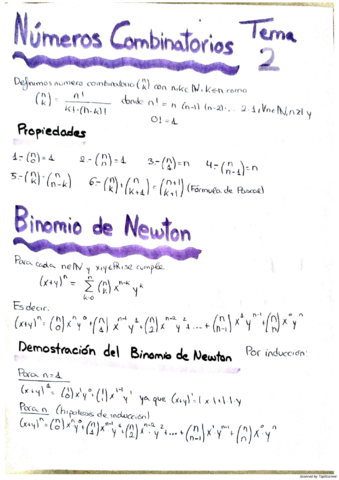 Números Combinatorios Tema 2
Definimos número combinatorio (n k) con n,k∈ℕ, k≤n como
(n k) = n! / k!·(n-k)! donde n! = n·(n-1)·(n-2)·...·2·1, ∀n∈ℕ, n≥1 y
0! = 1
Propiedades
1.- (n 0) = 1 2.- (n n) = 1 3.- (n 1) = n 4.- (n n-1) = n
5.- (n k) = (n n-k) 6.- (n k) + (n k+1) = (n+1 k+1) (Fórmula de Pascal)
Binomio de Newton
Para cada n∈ℕ y x,y∈ℝ se cumple
(x+y)ⁿ = Σ k=0 n (n k) xⁿ⁻ᵏ yᵏ
Es decir:
(x+y)ⁿ = (n 0) xⁿ y⁰ + (n 1) xⁿ⁻¹ y¹ + (n 2) xⁿ⁻² y² + ... + (n n-1) x¹ yⁿ⁻¹ + (n n) x⁰ yⁿ
Demostración del Binomio de Newton Por inducción:
Para n=1
(x+y)¹ = (1 0) x¹ y⁰ + (1 1) x¹⁻¹ y¹ ya que (x+y)¹ = 1·x·1+1·1·y
Para n (hipótesis de inducción)
(x+y)ⁿ = (n 0) xⁿ y⁰ + (n 1) xⁿ⁻¹ y¹ + (n 2) xⁿ⁻² y² + ... + (n n-1) x¹ yⁿ⁻¹ + (n n) x⁰ yⁿ
Scanned by TapScanner